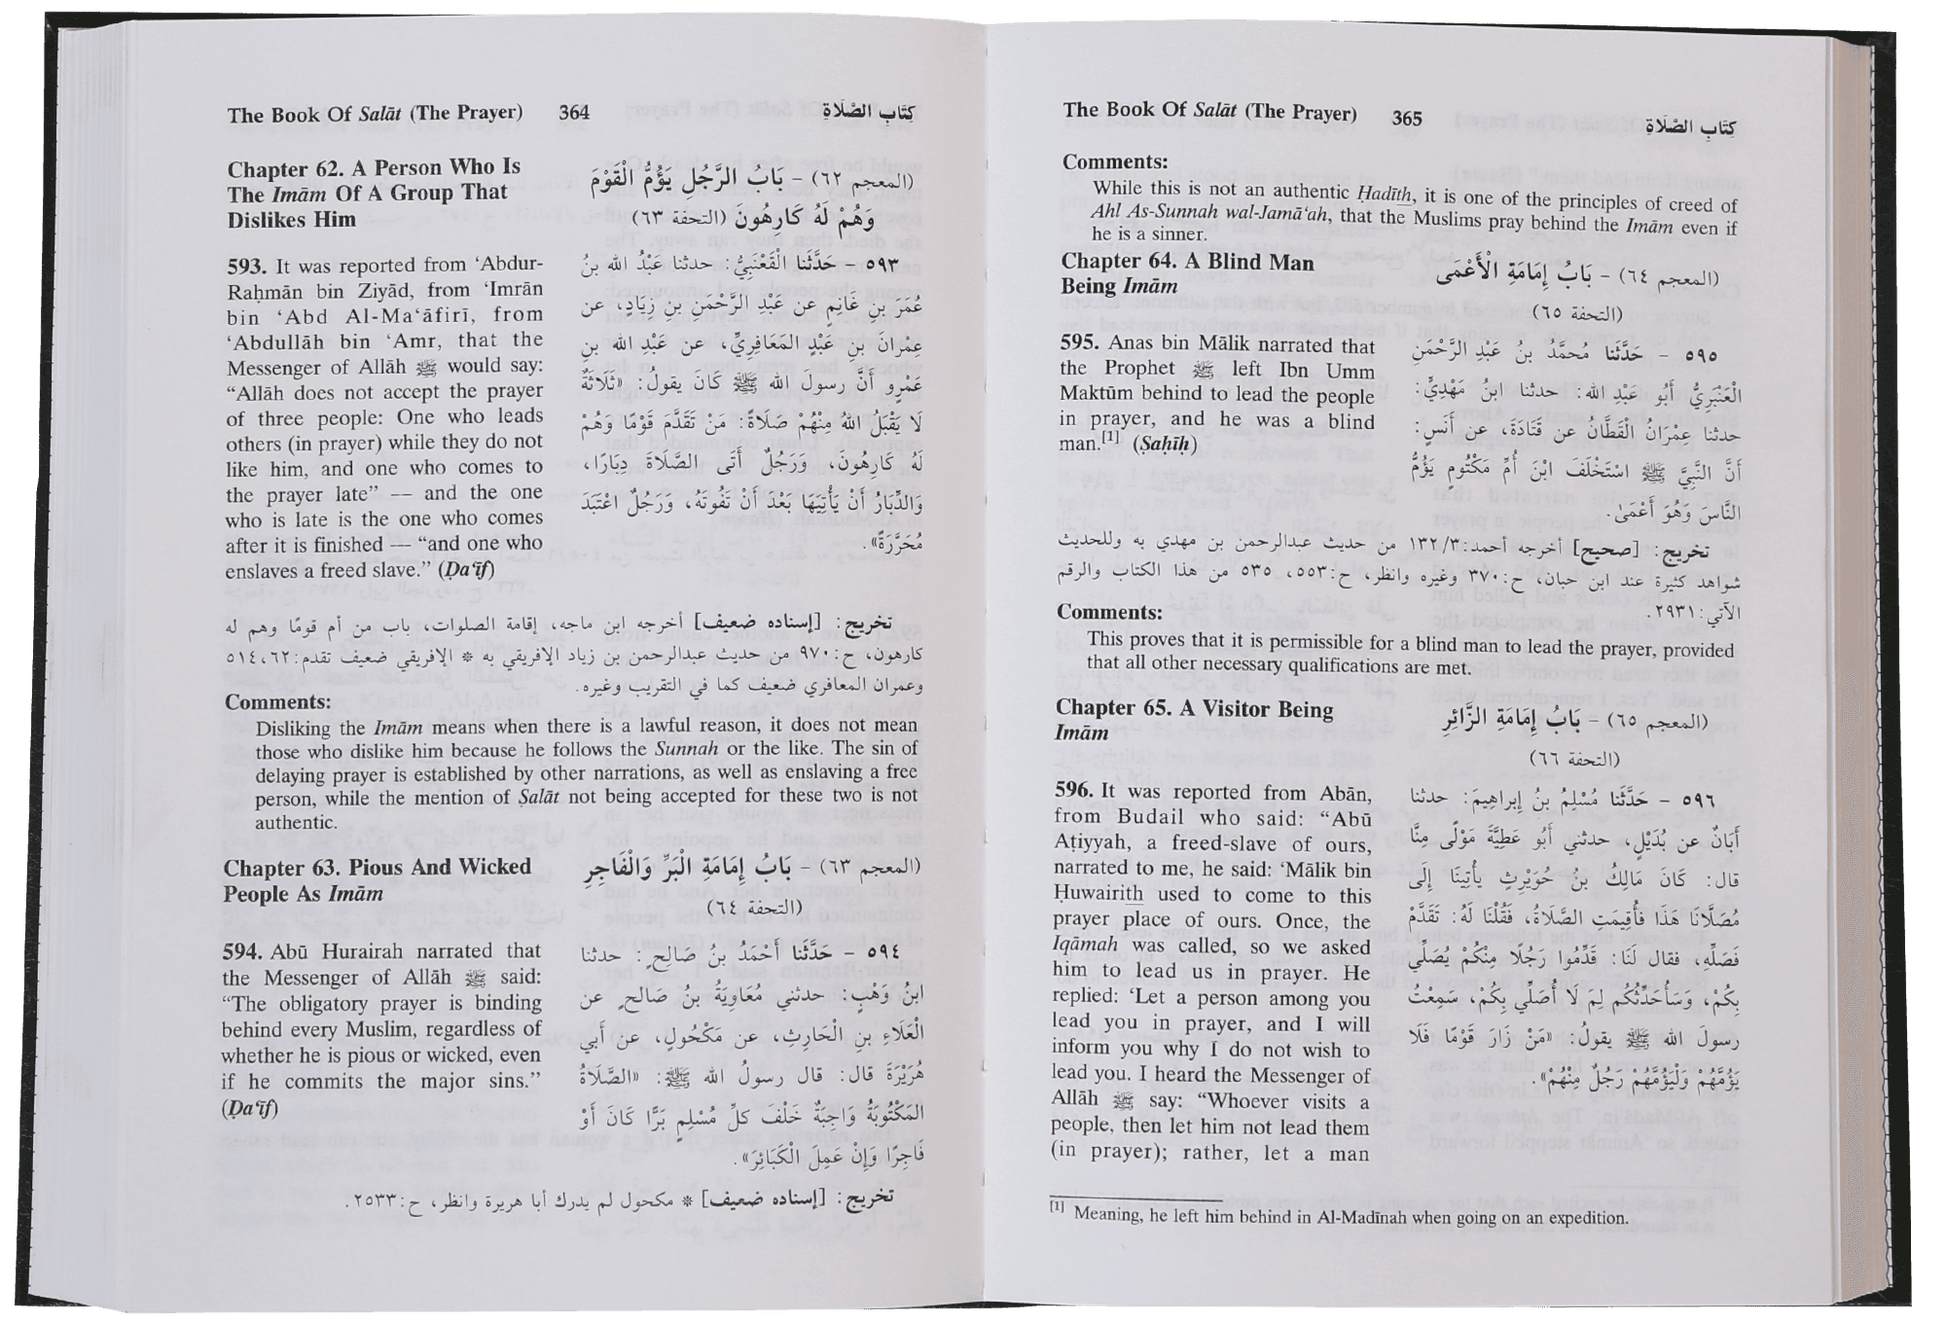 The Book Of Salāt (The Prayer) 364 كِتَابِ الصَّلَاةِ
Chapter 62. A Person Who Is
The Imām Of A Group That
Dislikes Him
(المعجم ٦٢) - بَابُ الرَّجُلِ يَؤُمُّ الْقَوْمَ
وَهُمْ لَهُ كَارِهُونَ (التحفة ٦٣)
593. It was reported from ‘Abdur-
Raḥmān bin Ziyād, from ‘Imrān
bin ‘Abd Al-Ma‘āfirī, from
‘Abdullāh bin ‘Amr, that the
Messenger of Allāh ﷺ would say:
“Allāh does not accept the prayer
of three people: One who leads
others (in prayer) while they do not
like him, and one who comes to
the prayer late” — and the one
who is late is the one who comes
after it is finished — “and one who
enslaves a freed slave.” (Ḍa‘īf)
٥٩٣ - حَدَّثَنا الْقَعْنَبِيُّ: حدثنا عَبْدُ الله بنُ
عُمَرَ بنِ غَانِمٍ عن عَبْدِ الرَّحْمَنِ بنِ زِيَادٍ، عن
عِمْرَانَ بنِ عَبْدٍ المَعَافِرِيِّ، عن عَبْدِ الله بنِ
عَمْرٍو أَنَّ رسولَ الله ﷺ كَانَ يقولُ: «ثَلَاثَةٌ
لَا يَقْبَلُ اللهُ مِنْهُمْ صَلَاةً: مَنْ تَقَدَّمَ قَوْمًا وَهُمْ
لَهُ كَارِهُونَ، وَرَجُلٌ أَتَى الصَّلَاةَ دِبَارًا،
وَالدِّبَارُ أَنْ يَأْتِيَهَا بَعْدَ أَنْ تَفُوتَهُ، وَرَجُلٌ اعْتَبَدَ
مُحَرَّرَةً».
تخريج: [إسناده ضعيف] أخرجه ابن ماجه، إقامة الصلوات، باب من أم قومًا وهم له
كارهون، ح:٩٧٠ من حديث عبدالرحمن بن زياد الإفريقي به * الإفريقي ضعيف تقدم:٦٢، ٥١٤
وعمران المعافري ضعيف كما في التقريب وغيره.
Comments:
Disliking the Imām means when there is a lawful reason, it does not mean
those who dislike him because he follows the Sunnah or the like. The sin of
delaying prayer is established by other narrations, as well as enslaving a free
person, while the mention of Ṣalāt not being accepted for these two is not
authentic.
Chapter 63. Pious And Wicked
People As Imām
(المعجم ٦٣) - بَابُ إِمَامَةِ الْبَرِّ وَالْفَاجِرِ
(التحفة ٦٤)
594. Abū Hurairah narrated that
the Messenger of Allāh ﷺ said:
“The obligatory prayer is binding
behind every Muslim, regardless of
whether he is pious or wicked, even
if he commits the major sins.”
(Ḍa‘īf)
٥٩٤ - حَدَّثَنا أَحْمَدُ بنُ صَالحٍ: حدثنا
ابنُ وَهْبٍ: حدثني مُعَاوِيَةُ بنُ صَالحٍ عن
الْعَلَاءِ بنِ الْحَارِثِ، عن مَكْحُولٍ، عن أَبي
هُرَيْرَةَ قال: قال رسولُ الله ﷺ: «الصَّلَاةُ
المَكْتُوبَةُ وَاجِبَةٌ خَلْفَ كلِّ مُسْلِمٍ بَرًّا كَانَ أَوْ
فَاجِرًا وَإِنْ عَمِلَ الْكَبَائِرَ».
تخريج: [إسناده ضعيف] * مكحول لم يدرك أبا هريرة وانظر، ح:٢٥٣٣.
The Book Of Salāt (The Prayer) 365 كِتَابِ الصَّلَاةِ
Comments:
While this is not an authentic Ḥadīth, it is one of the principles of creed of
Ahl As-Sunnah wal-Jamā‘ah, that the Muslims pray behind the Imām even if
he is a sinner.
Chapter 64. A Blind Man
Being Imām
(المعجم ٦٤) - بَابُ إِمَامَةِ الْأَعْمَى
(التحفة ٦٥)
595. Anas bin Mālik narrated that
the Prophet ﷺ left Ibn Umm
Maktūm behind to lead the people
in prayer, and he was a blind
man.[1] (Ṣaḥīḥ)
٥٩٥ - حَدَّثَنا مُحمَّدُ بنُ عَبْدِ الرَّحْمَنِ
الْعَنْبَرِيُّ أَبُو عَبْدِ الله: حدثنا ابنُ مَهْدِيٍّ:
حدثنا عِمْرَانُ الْقَطَّانُ عن قَتَادَةَ، عن أَنَسٍ:
أَنَّ النَّبِيَّ ﷺ اسْتَخْلَفَ ابْنَ أُمِّ مَكْتُومٍ يَؤُمُّ
النَّاسَ وَهُوَ أَعْمَىٰ.
تخريج: [صحيح] أخرجه أحمد:٣/ ١٣٢ من حديث عبدالرحمن بن مهدي به وللحديث
شواهد كثيرة عند ابن حبان، ح:٣٧٠ وغيره وانظر، ح:٥٥٣، ٥٣٥ من هذا الكتاب والرقم
الآتي:٢٩٣١.
Comments:
This proves that it is permissible for a blind man to lead the prayer, provided
that all other necessary qualifications are met.
Chapter 65. A Visitor Being
Imām
(المعجم ٦٥) - بَابُ إِمَامَةِ الزَّائِرِ
(التحفة ٦٦)
596. It was reported from Abān,
from Budail who said: “Abū
Aṭiyyah, a freed-slave of ours,
narrated to me, he said: ‘Mālik bin
Ḥuwairith used to come to this
prayer place of ours. Once, the
Iqāmah was called, so we asked
him to lead us in prayer. He
replied: ‘Let a person among you
lead you in prayer, and I will
inform you why I do not wish to
lead you. I heard the Messenger of
Allāh ﷺ say: “Whoever visits a
people, then let him not lead them
(in prayer); rather, let a man
٥٩٦ - حَدَّثَنا مُسْلِمُ بنُ إبراهِيمَ: حدثنا
أَبَانٌ عن بُدَيْلٍ، حدثني أَبُو عَطِيَّةَ مَوْلًى مِنَّا
قال: كَانَ مَالِكُ بنُ حُوَيْرِثٍ يأْتِينَا إِلَى
مُصَلَّانَا هَذَا فأُقِيمَتِ الصَّلَاةُ، فَقُلْنَا لَهُ: تَقَدَّمْ
فَصَلِّهِ، فقال لَنَا: قَدِّمُوا رَجُلًا مِنْكُمْ يُصَلِّي
بِكُمْ، وَسَأُحَدِّثُكُم لِمَ لَا أُصَلِّي بِكُمْ، سَمِعْتُ
رسولَ الله ﷺ يقولُ: «مَنْ زَارَ قَوْمًا فَلَا
يَؤُمَّهُمْ وَلْيَؤُمَّهُمْ رَجُلٌ مِنْهُمْ».
[1] Meaning, he left him behind in Al-Madīnah when going on an expedition.